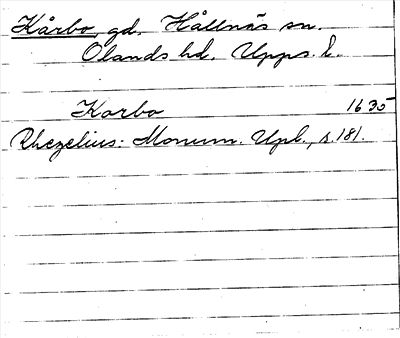 Kårbo, gd. Hållnäs sn.
Olands hd. Upps. l.
Karbo 1635
Rhezelius: Monum. Upl., s. 181.